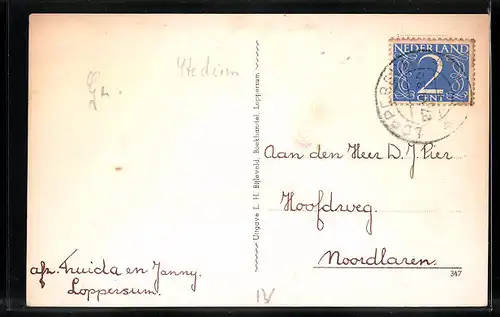 Stedum
Gr.
NEDERLAND
2
CENT
LOPPERSUM
Aan den Heer D. J. Pier
Hoofdweg.
Noordlaren.
Uitgave L. H. Bijleveld, Boekhandel, Loppersum
afz. Truida en Janny.
Loppersum.
IV
347